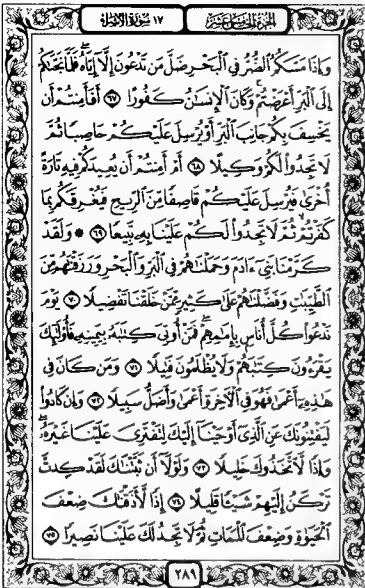 الجزء الخامس عشر ١٧ سورة الإسراء
وَإِذَا مَسَّكُمُ ٱلضُّرُّ فِى ٱلْبَحْرِ ضَلَّ مَن تَدْعُونَ إِلَّآ إِيَّاهُ فَلَمَّا نَجَّىٰكُمْ
إِلَى ٱلْبَرِّ أَعْرَضْتُمْ وَكَانَ ٱلْإِنسَٰنُ كَفُورًا ٦٧ أَفَأَمِنتُمْ أَن
يَخْسِفَ بِكُمْ جَانِبَ ٱلْبَرِّ أَوْ يُرْسِلَ عَلَيْكُمْ حَاصِبًا ثُمَّ
لَا تَجِدُوا۟ لَكُمْ وَكِيلًا ٦٨ أَمْ أَمِنتُمْ أَن يُعِيدَكُمْ فِيهِ تَارَةً
أُخْرَىٰ فَيُرْسِلَ عَلَيْكُمْ قَاصِفًا مِّنَ ٱلرِّيحِ فَيُغْرِقَكُم بِمَا
كَفَرْتُمْ ثُمَّ لَا تَجِدُوا۟ لَكُمْ عَلَيْنَا بِهِۦ تَبِيعًا ٦٩ ۞ وَلَقَدْ
كَرَّمْنَا بَنِىٓ ءَادَمَ وَحَمَلْنَٰهُمْ فِى ٱلْبَرِّ وَٱلْبَحْرِ وَرَزَقْنَٰهُم مِّنَ
ٱلطَّيِّبَٰتِ وَفَضَّلْنَٰهُمْ عَلَىٰ كَثِيرٍ مِّمَّنْ خَلَقْنَا تَفْضِيلًا ٧٠ يَوْمَ
نَدْعُوا۟ كُلَّ أُنَاسٍۭ بِإِمَٰمِهِمْ فَمَنْ أُوتِىَ كِتَٰبَهُۥ بِيَمِينِهِۦ فَأُو۟لَٰٓئِكَ
يَقْرَءُونَ كِتَٰبَهُمْ وَلَا يُظْلَمُونَ فَتِيلًا ٧١ وَمَن كَانَ فِى
هَٰذِهِۦٓ أَعْمَىٰ فَهُوَ فِى ٱلْءَاخِرَةِ أَعْمَىٰ وَأَضَلُّ سَبِيلًا ٧٢ وَإِن كَادُوا۟
لَيَفْتِنُونَكَ عَنِ ٱلَّذِىٓ أَوْحَيْنَآ إِلَيْكَ لِتَفْتَرِىَ عَلَيْنَا غَيْرَهُۥ
وَإِذًا لَّٱتَّخَذُوكَ خَلِيلًا ٧٣ وَلَوْلَآ أَن ثَبَّتْنَٰكَ لَقَدْ كِدتَّ
تَرْكَنُ إِلَيْهِمْ شَيْـًٔا قَلِيلًا ٧٤ إِذًا لَّأَذَقْنَٰكَ ضِعْفَ
ٱلْحَيَوٰةِ وَضِعْفَ ٱلْمَمَاتِ ثُمَّ لَا تَجِدُ لَكَ عَلَيْنَا نَصِيرًا ٧٥
٢٨٩